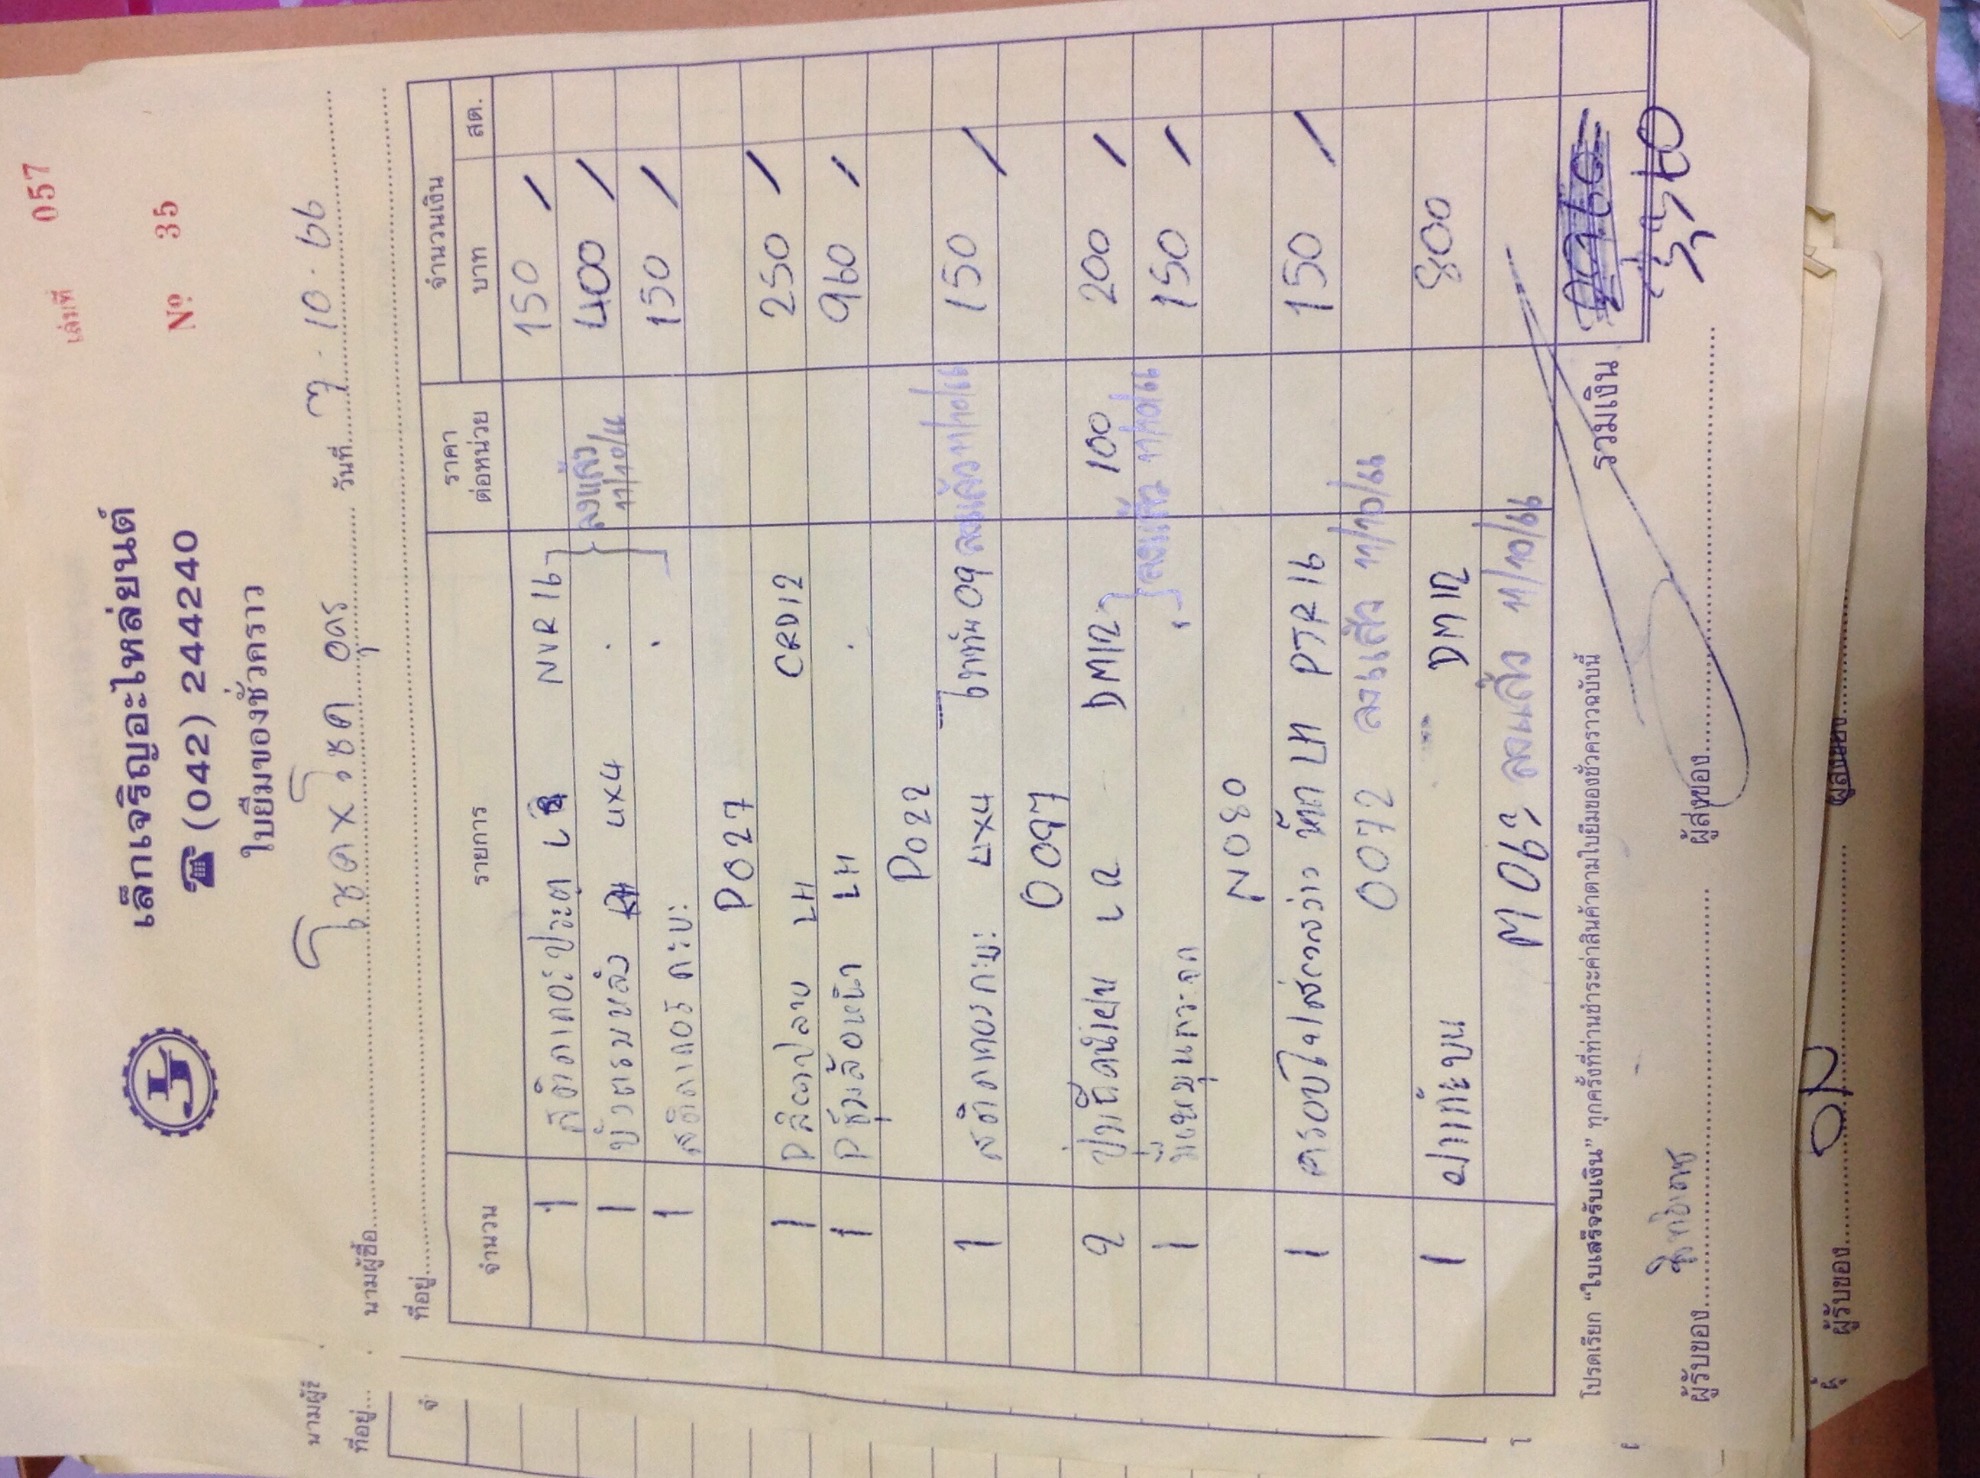 เล่มที่ 057
เล็กเจริญอะไหล่ยนต์
☎ (042) 244240
Nº 35
ใบยืมของชั่วคราว
นามผู้ซื้อ โชคxโชค อุดร วันที่ 7.10.66
ที่อยู่
จำนวน รายการ ราคาต่อหน่วย จำนวนเงิน
บาท สต.
1 สติกเกอร์ประตู NVR16 150
1 คิ้วตรมหลัง 4x4 400
ลงแล้ว 11/10/66
1 สติกเกอร์ กะบะ 150
P027
1 Pลิ้นปลาย LH CRD12 250
1 Pซุ้มล้อหน้า LH 960
P022
1 สติกเกอร์กะบะ 4x4 ไททัน 09 ลงแล้ว 11/10/66 150
0097
2 DM12 100 200
1 มือหมุนกระจก ลงแล้ว 11/10/66 150
N080
1 ครอบไฟส่องสว่าง LH PTR16 150
0072 ลงแล้ว 11/10/66
1 ฝาท้ายบน DM12 800
M062 ลงแล้ว 11/10/66
รวมเงิน
โปรดเรียก “ใบเสร็จรับเงิน” ทุกครั้งที่ท่านชำระค่าสินค้าตามใบยืมของชั่วคราวฉบับนี้
ผู้รับของ ผู้ส่งของ
ผู้รับของ ผู้ส่งของ